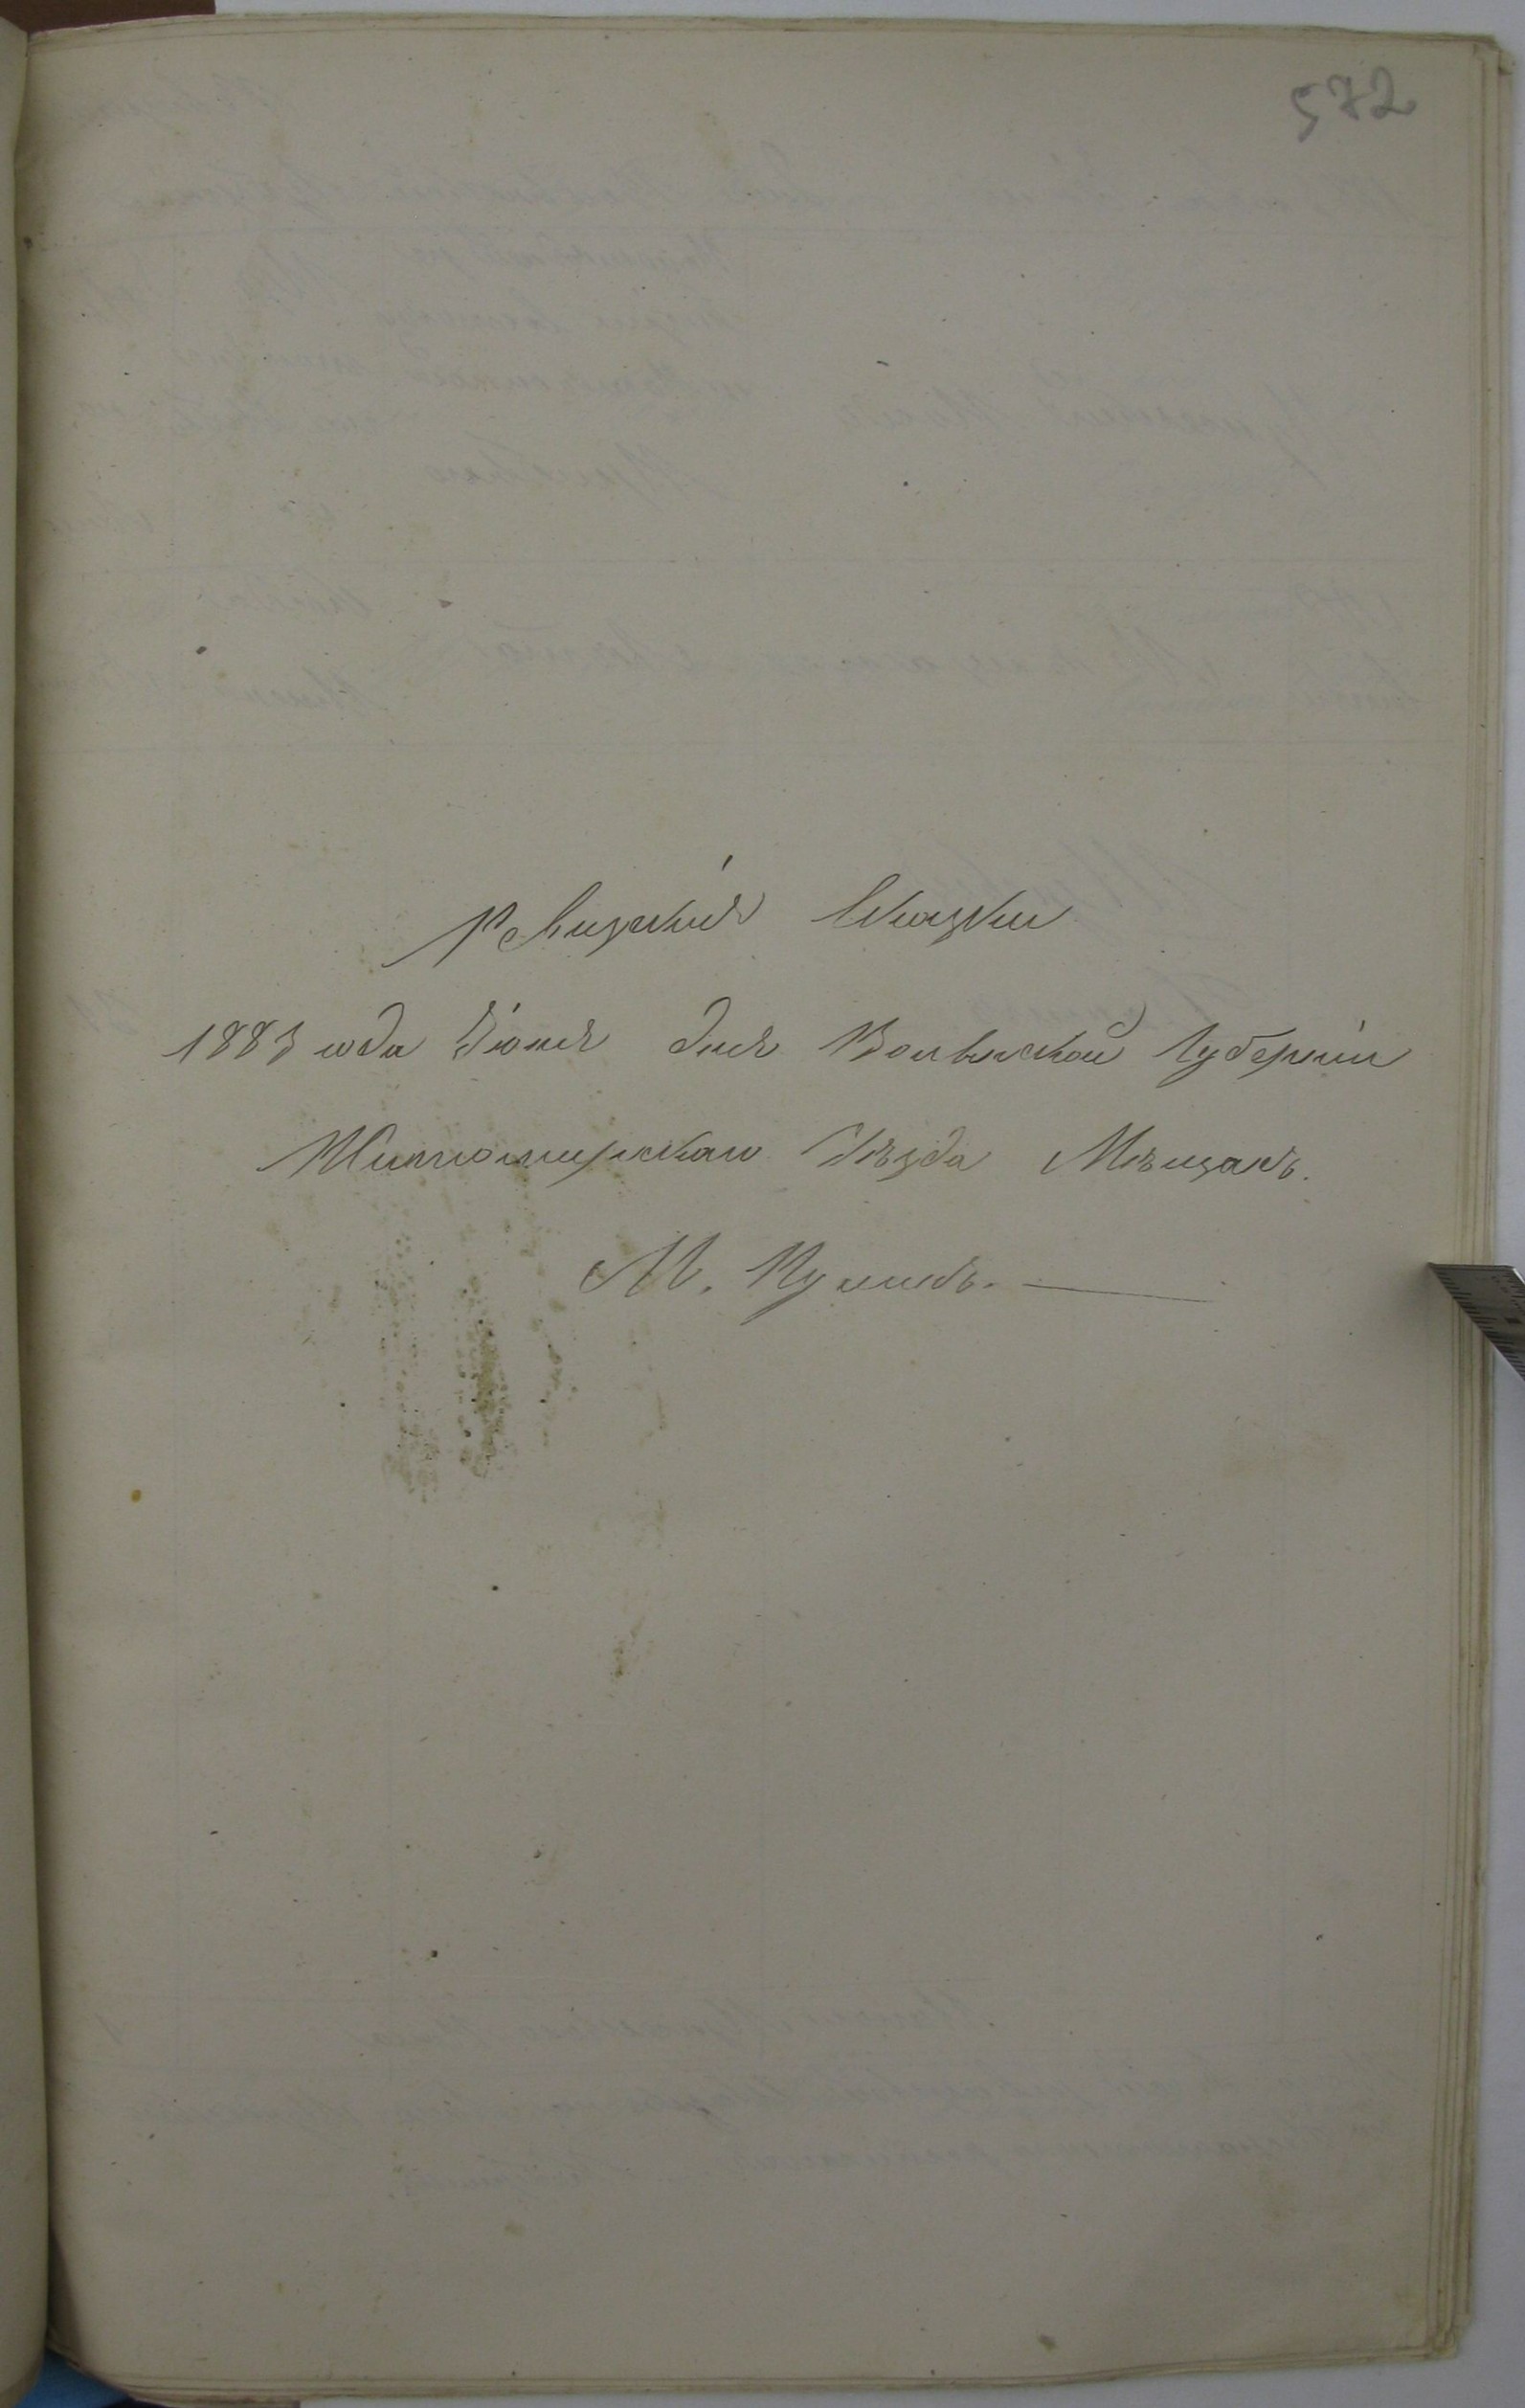 572
Ревизскія Сказки
1883 года Іюня дня Волынской Губерніи
Житомирскаго Уѣзда Мѣщанъ.
М. Кулинъ.